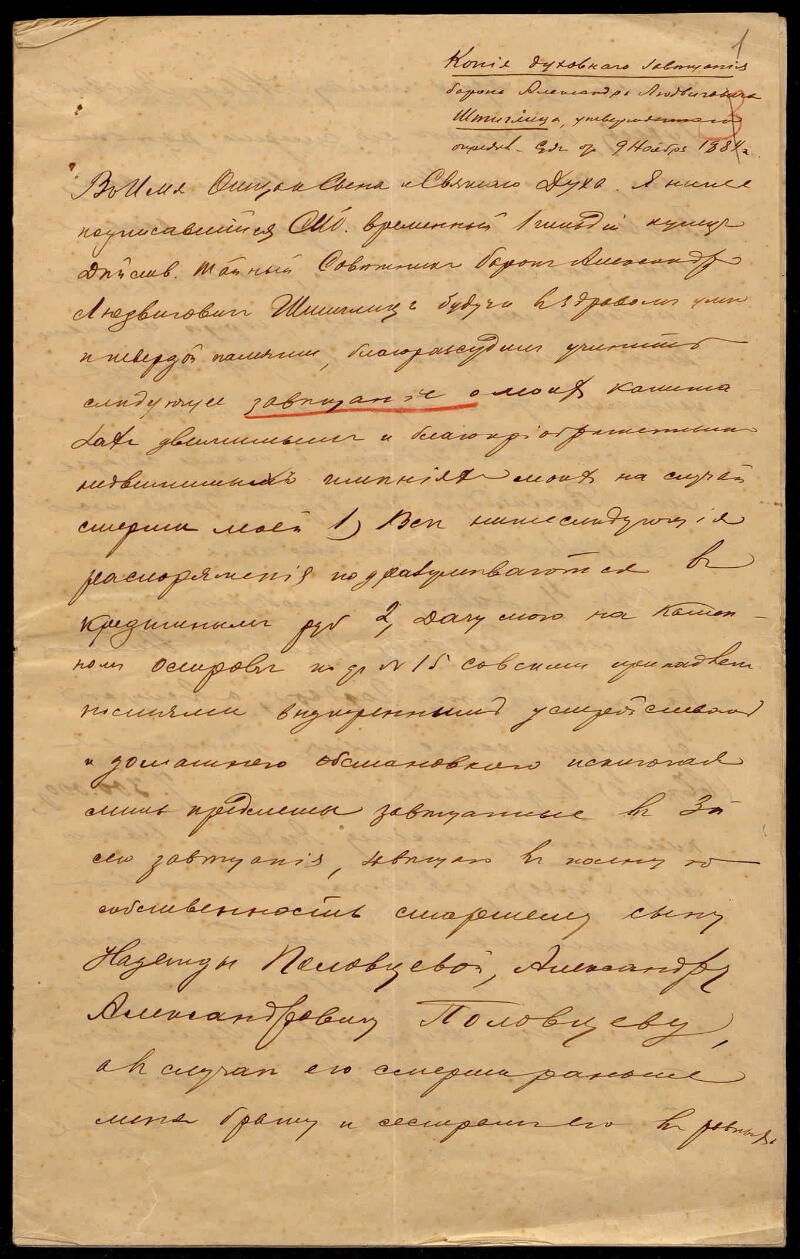 1
Копія духовнаго завѣщанія
барона Александра Людвиговича
Штиглица, утвержденнаго
опредѣл. Суд. от 9 Ноября 1884 г.
Во Имя Отца и Сына и Святаго Духа. Я ниже
подписавшійся СПб. временный 1 гильдіи купецъ
Дѣйств. Тайный Совѣтникъ баронъ Александръ
Людвиговичъ Штиглицъ будучи въ здравомъ умѣ
и твердой памяти, благоразсудилъ учинить
слѣдующее завѣщаніе о моихъ капита
лахъ движимыхъ и благопріобрѣтенныхъ
недвижимыхъ имѣніяхъ моихъ на случай
смерти моей 1) Всѣ нижеслѣдующія
распоряженія подразумѣваются въ
кредитныхъ руб 2, Дачу мою на Камен-
номъ островѣ под № 15 со всѣми принадлеж
ностями внутреннимъ устройствомъ
и домашнею обстановкою исключая
лишь предметы завѣщанные въ 3 п
сего завѣщанія, завѣщаю въ полную
собственность старшему сыну
Надежды Половцевой, Александру
Александровичу Половцеву,
а въ случаѣ его смерти раньше
меня брату и сестрамъ его въ равныхъ